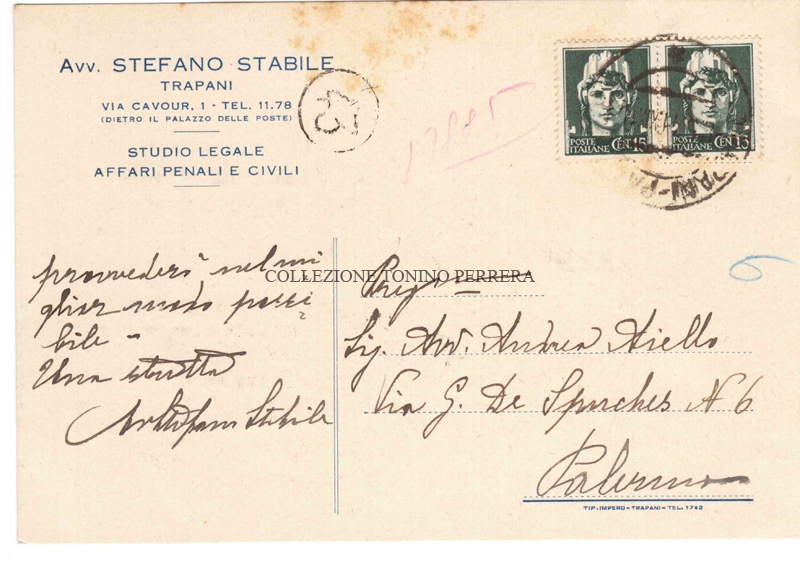 Avv. STEFANO STABILE
TRAPANI
VIA CAVOUR, 1 - TEL. 11.78
(DIETRO IL PALAZZO DELLE POSTE)
STUDIO LEGALE
AFFARI PENALI E CIVILI
POSTE ITALIANE CEN. 15
POSTE ITALIANE CEN. 15
provvederò nel mi
glior modo possi
bile
Una stretta
Stabile
COLLEZIONE TONINO PERRERA
Preg
Sig. Avv. Andrea Aiello
Via G. De Spuches N 6
Palermo
TIP. IMPERO - TRAPANI - TEL. 1742